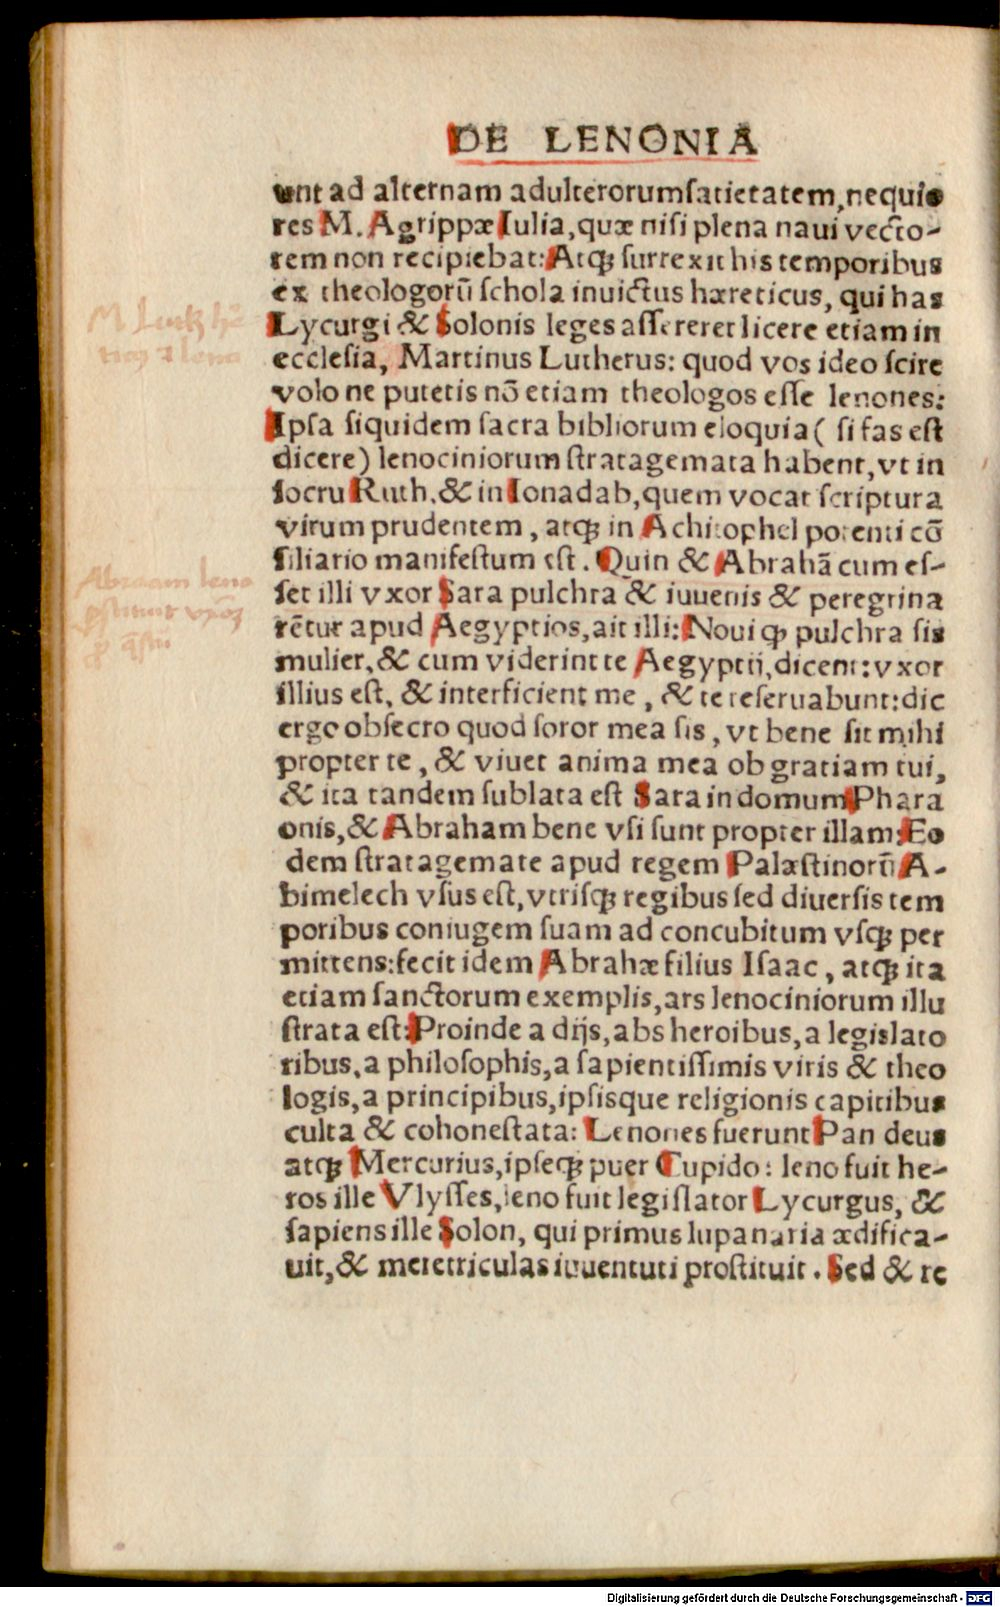 DE LENONIA
unt ad alternam adulterorumsatietatem, nequio
res M. Agrippæ Iulia, quæ nisi plena naui vecto-
rem non recipiebat: Atqꝫ surrexit his temporibus
ex theologorū schola inuictus hæreticus, qui has
Lycurgi & Solonis leges assereret licere etiam in
ecclesia, Martinus Lutherus: quod vos ideo scire
volo ne putetis nō etiam theologos esse lenones:
Ipsa siquidem sacra bibliorum eloquia ( si fas est
dicere) lenociniorum stratagemata habent, vt in
socru Ruth, & in Ionadab, quem vocat scriptura
virum prudentem, atqꝫ in Achitophel potenti cō
siliario manifestum est. Quin & Abrahā cum es-
set illi vxor Sara pulchra & iuuenis & peregrina
rētur apud Aegyptios, ait illi: Noui ꝙ pulchra sis
mulier, & cum viderint te Aegyptii, dicent: vxor
illius est, & interficient me, & te reseruabunt: dic
ergo obsecro quod soror mea sis, vt bene sit mihi
propter te, & viuet anima mea ob gratiam tui,
& ita tandem sublata est Sara in domum Phara
onis, & Abraham bene vsi sunt propter illam: Eo
dem stratagemate apud regem Palæstinorū A-
bimelech vsus est, vtrisqꝫ regibus sed diuersis tem
poribus coniugem suam ad concubitum vsqꝫ per
mittens: fecit idem Abrahæ filius Isaac, atqꝫ ita
etiam sanctorum exemplis, ars lenociniorum illu
strata est: Proinde a dijs, abs heroibus, a legislato
ribus, a philosophis, a sapientissimis viris & theo
logis, a principibus, ipsisque religionis capitibus
culta & cohonestata: Lenones fuerunt Pan deus
atqꝫ Mercurius, ipseqꝫ puer Cupido: leno fuit he-
ros ille Vlysses, leno fuit legislator Lycurgus, &
sapiens ille Solon, qui primus lupanaria ædifica-
uit, & meretriculas iuuentuti prostituit. Sed & re
M Luth
leno
Abraam leno
Digitalisierung gefördert durch die Deutsche Forschungsgemeinschaft - DFG